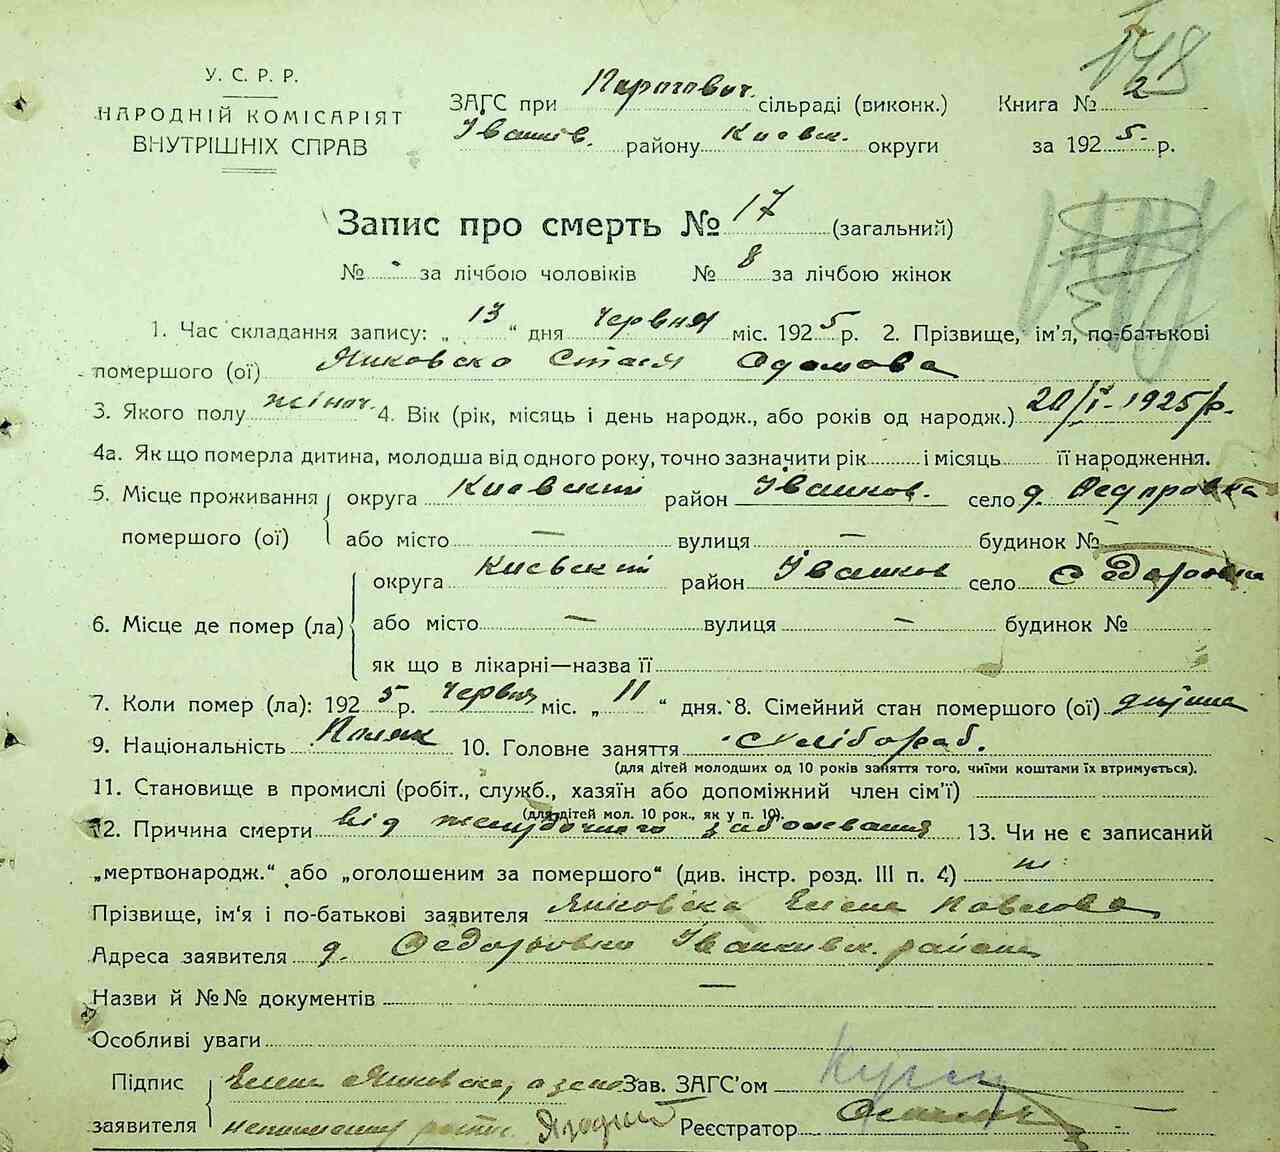 148
У. С. Р. Р.
НАРОДНІЙ КОМІСАРІЯТ
ВНУТРІШНІХ СПРАВ
ЗАГС при сільраді (виконк.)
Іванків. району Києвск. округи
Книга № 2
за 1925 р.
Запис про смерть № 17 (загальний)
№ за лічбою чоловіків № 8 за лічбою жінок
1. Час складання запису: „ 13 “ дня Червня міс. 1925 р. 2. Прізвище, ім'я, по-батькові
помершого (ої) Янковско Стася Одамова
3. Якого полу жіноч. 4. Вік (рік, місяць і день народж., або років од народж.) 20/І-1925/р.
4а. Як що померла дитина, молодша від одного року, точно зазначити рік і місяць її народження.
5. Місце проживання помершого (ої) округа Киевский район Іванков. село д.
або місто — вулиця — будинок №
6. Місце де помер (ла) округа Киевский район Іванков село Федоровка
або місто — вулиця — будинок №
як що в лікарні—назва її
7. Коли помер (ла): 1925 р. Червня міс. „ 11 “ дня. 8. Сімейний стан помершого (ої)
9. Національність Поляк 10. Головне заняття Хлібораб.
(для дітей молодших од 10 років заняття того, чиїми коштами їх втримується).
11. Становище в промислі (робіт., служб., хазяїн або допоміжний член сім'ї)
(для дітей мол. 10 рок., як у п. 10).
12. Причина смерти від желудочного заболевания 13. Чи не є записаний
„мертвонародж.“ або „оголошеним за помершого“ (див. інстр. розд. III п. 4)
Прізвище, ім'я і по-батькові заявителя Янковска Елена Павлова
Адреса заявителя д. Федоровки Іванкивск. района
Назви й №№ документів —
Особливі уваги
Підпис заявителя Елена Янковска, а за Зав. ЗАГС'ом
Реєстратор